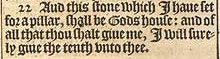 22 And this stone which I haue set
for a pillar, shall be Gods house: and of
all that thou shalt giue me, I will sure-
ly giue the tenth vnto thee.